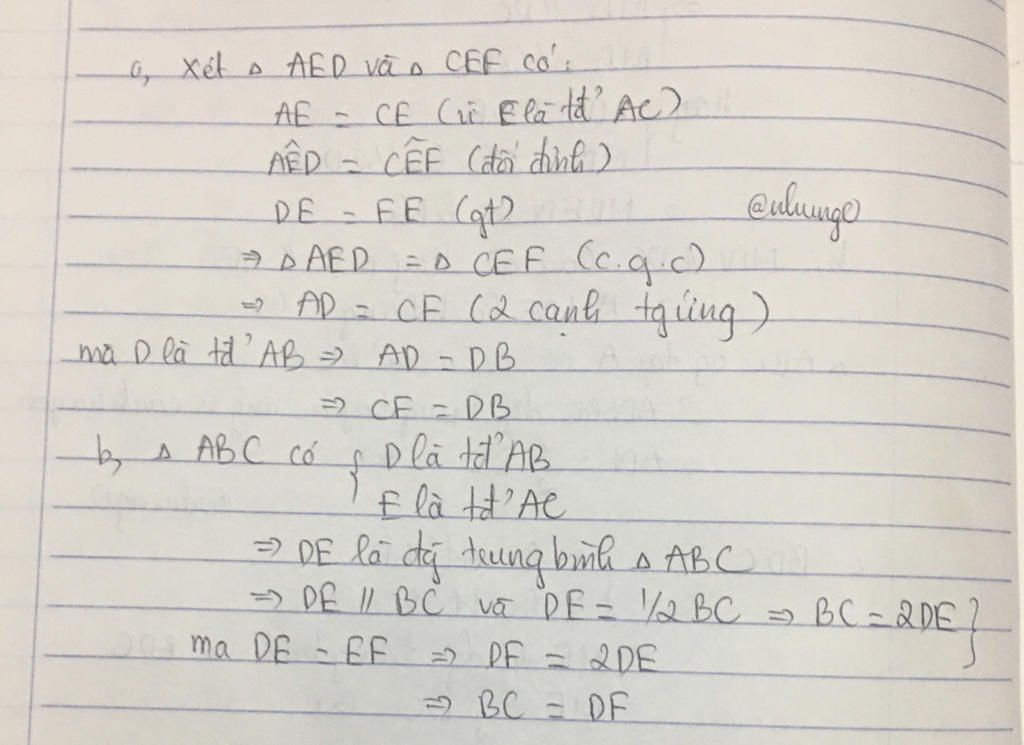 a, Xét Δ AED và Δ CEF có:
AE = CE (vì E là tđ' AC)
AÊD = CÊF (đối đỉnh)
DE = FE (gt)
@nhunge
⇒ Δ AED = Δ CEF (c.g.c)
⇒ AD = CF (2 cạnh tg ứng)
mà D là tđ' AB ⇒ AD = DB
⇒ CF = DB
b, Δ ABC có { D là tđ' AB
E là tđ' AC
⇒ DE là đg trung bình Δ ABC
⇒ DE // BC và DE = 1/2 BC ⇒ BC = 2DE }
ma DE = EF ⇒ DF = 2DE
⇒ BC = DF